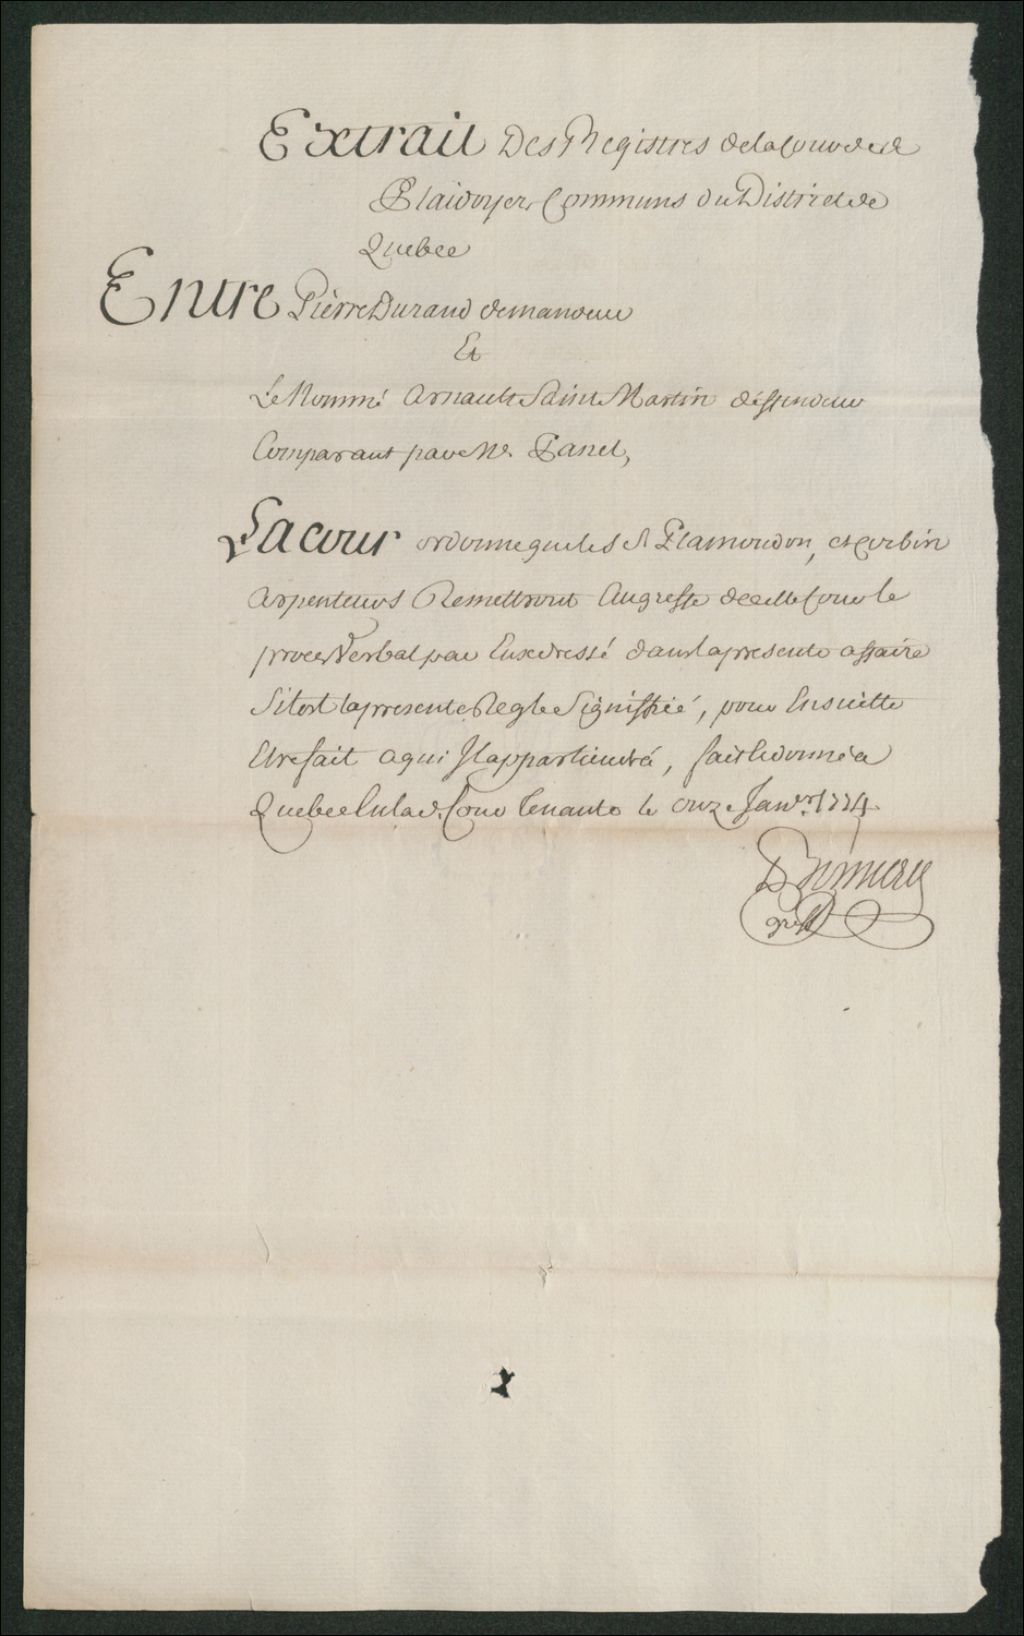 Extrait Des Registres de la Cour des
Plaidoyers Communs du District de
Quebec
Entre Pierre Durand demandeur
Et
Le Nommé Arnault Saint Martin déffendeur
Comparant par Me. Panet,
La cour ordonne que les Srs Plamondon, et Corbin
Arpenteurs Remettront Au greffe de cette Cour le
procès Verbal par Eux dressé dans la presente affaire
Sitost la presente Regle Signiffiéé, pour Ensuitte
Etre fait a qui Il appartiendrá, fait & donné a
Quebec En la de. Cour Tenante le onze Janvr. 1774
greff